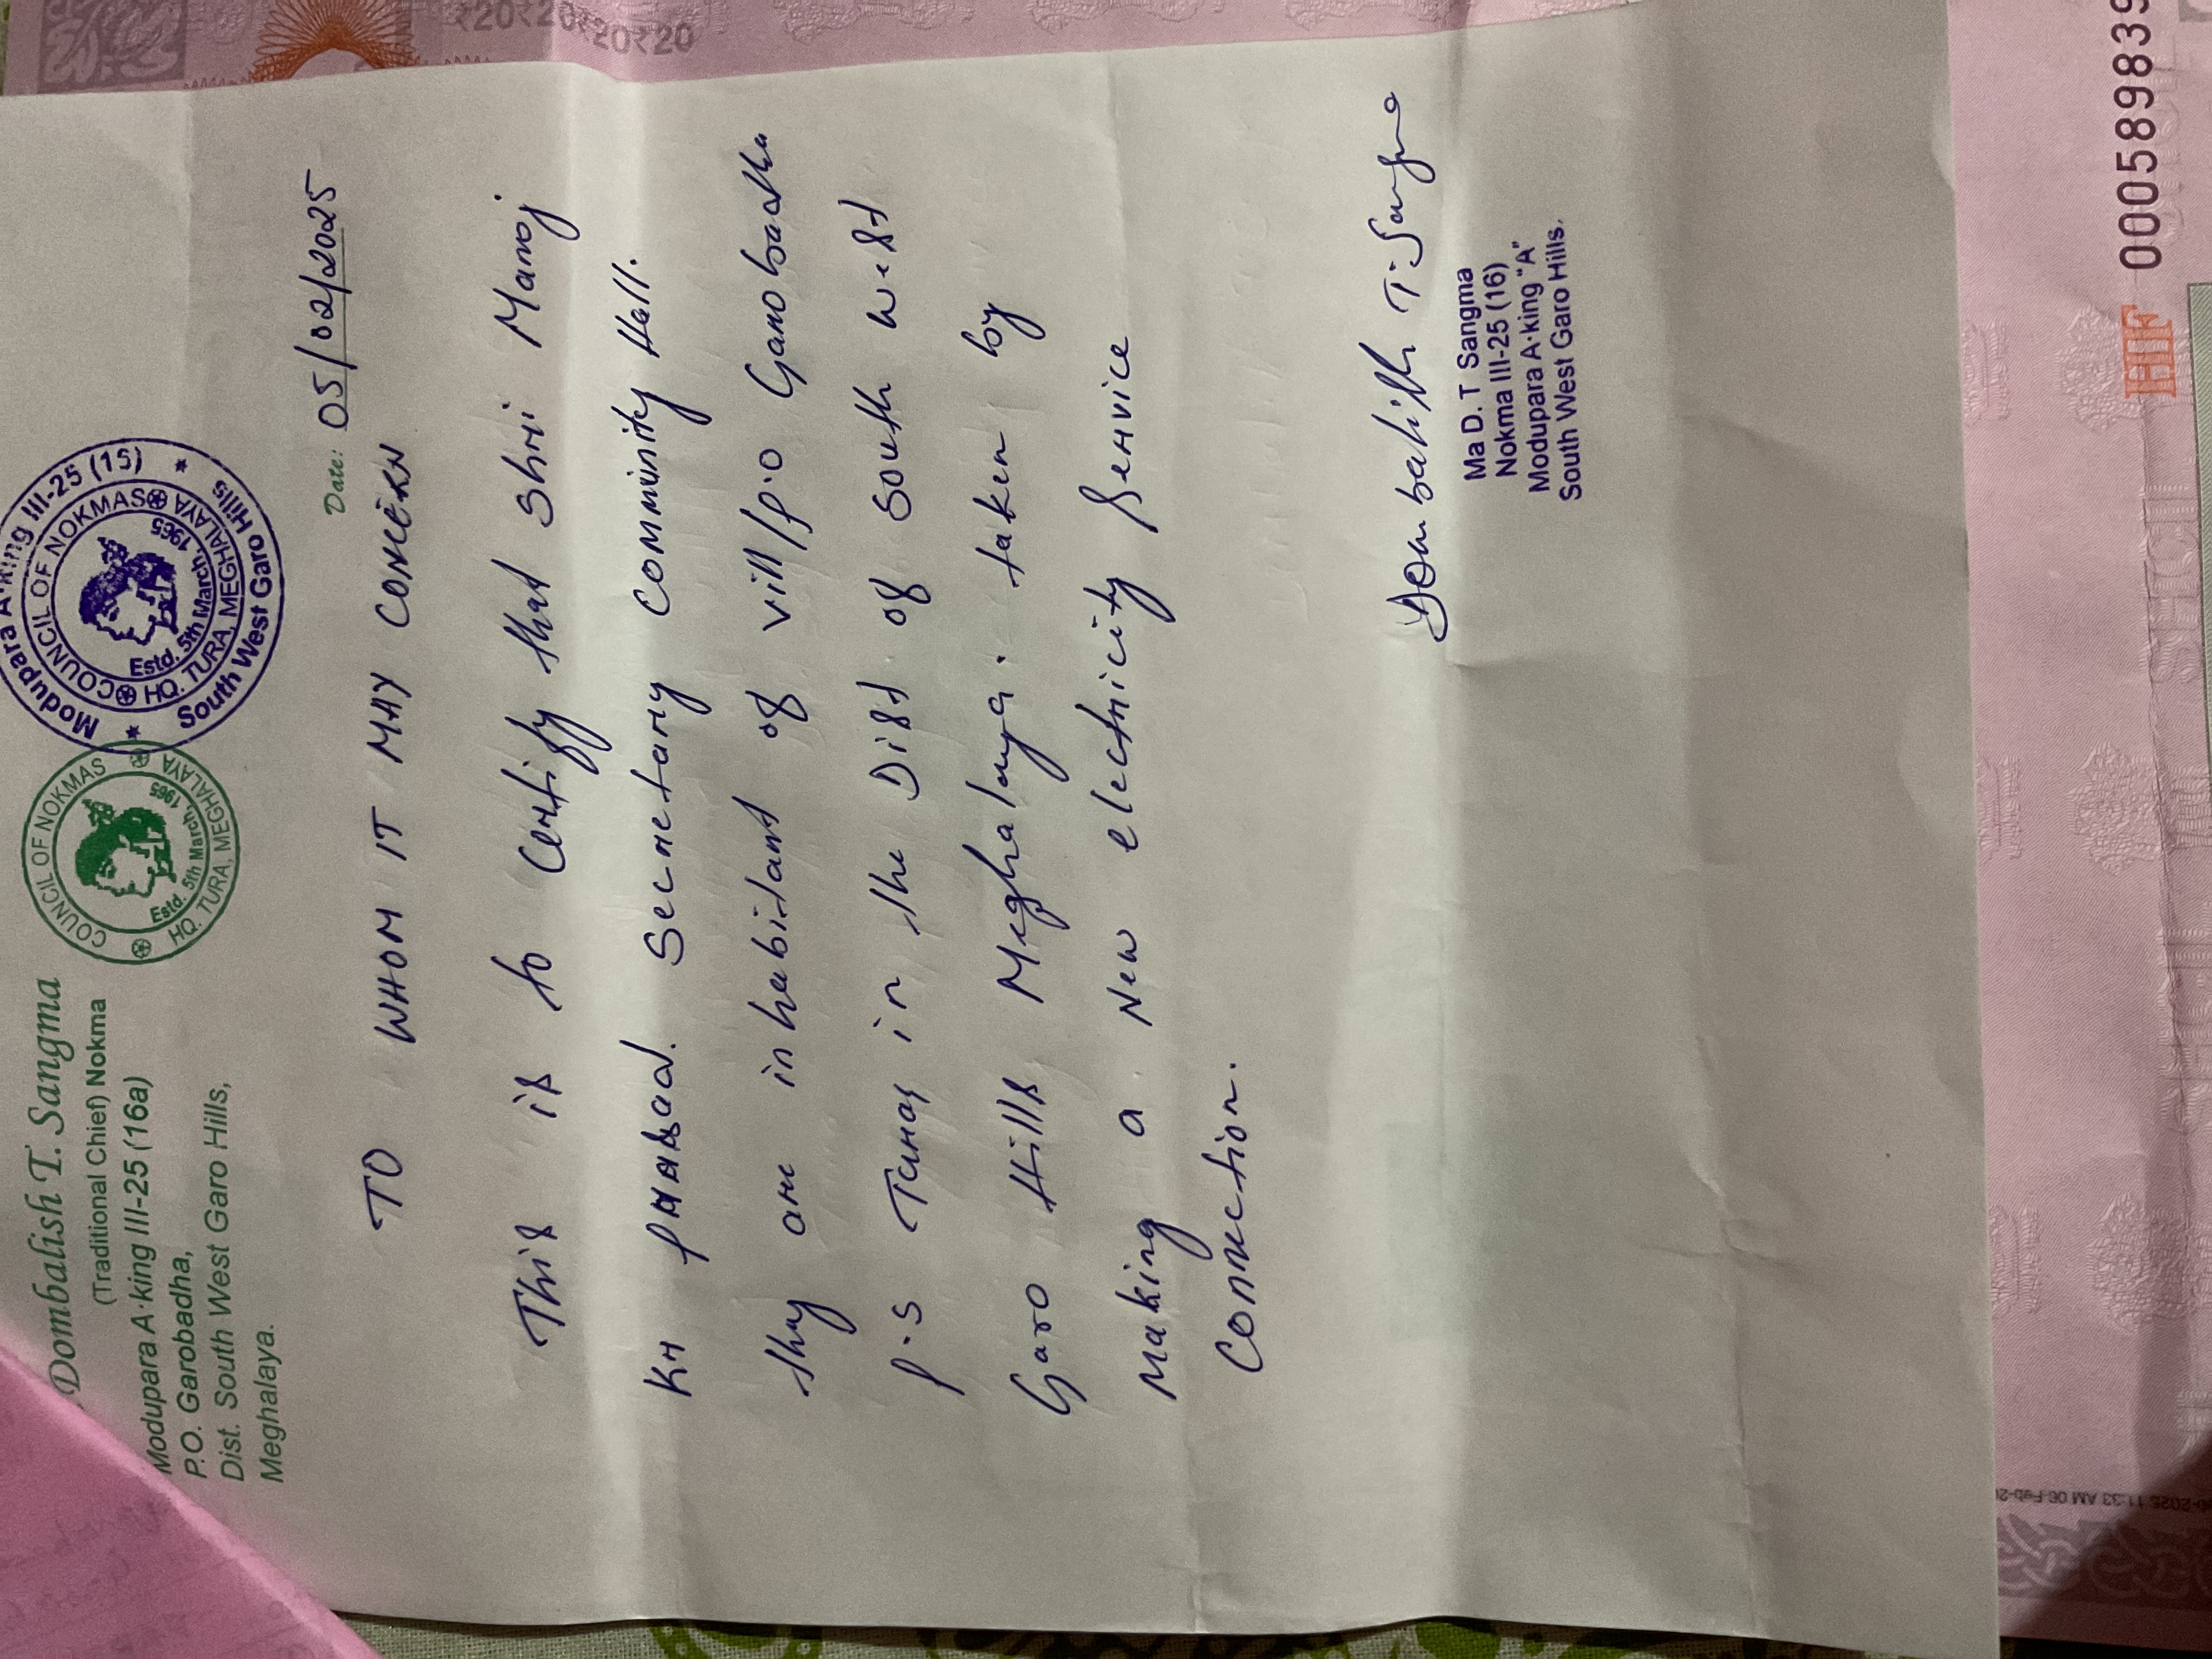 Dombalish T. Sangma
(Traditional Chief) Nokma
Modupara A·king III-25 (16a)
P.O. Garobadha,
Dist. South West Garo Hills,
Meghalaya.
COUNCIL OF NOKMAS
Estd. 5th March, 1965
HQ. TURA, MEGHALAYA
Modupara A·king III-25 (15)
COUNCIL OF NOKMAS
Estd. 5th March, 1965
HQ. TURA, MEGHALAYA
South West Garo Hills
Date: 05/02/2025
TO WHOM IT MAY CONCERN
This is to Certify that Shri Manoj
Kr prasad. Secretary Community Hall.
they are inhabitant of vill/p.o Garobadha
p.s Tura in the Dist of South west
Garo Hills Meghalaya. taken by
Making a New electricity Service
Connection.
Dombalish T. Sangma
Ma D. T Sangma
Nokma III-25 (16)
Modupara A·king "A"
South West Garo Hills.
₹20₹20₹20₹20
HF 00058983